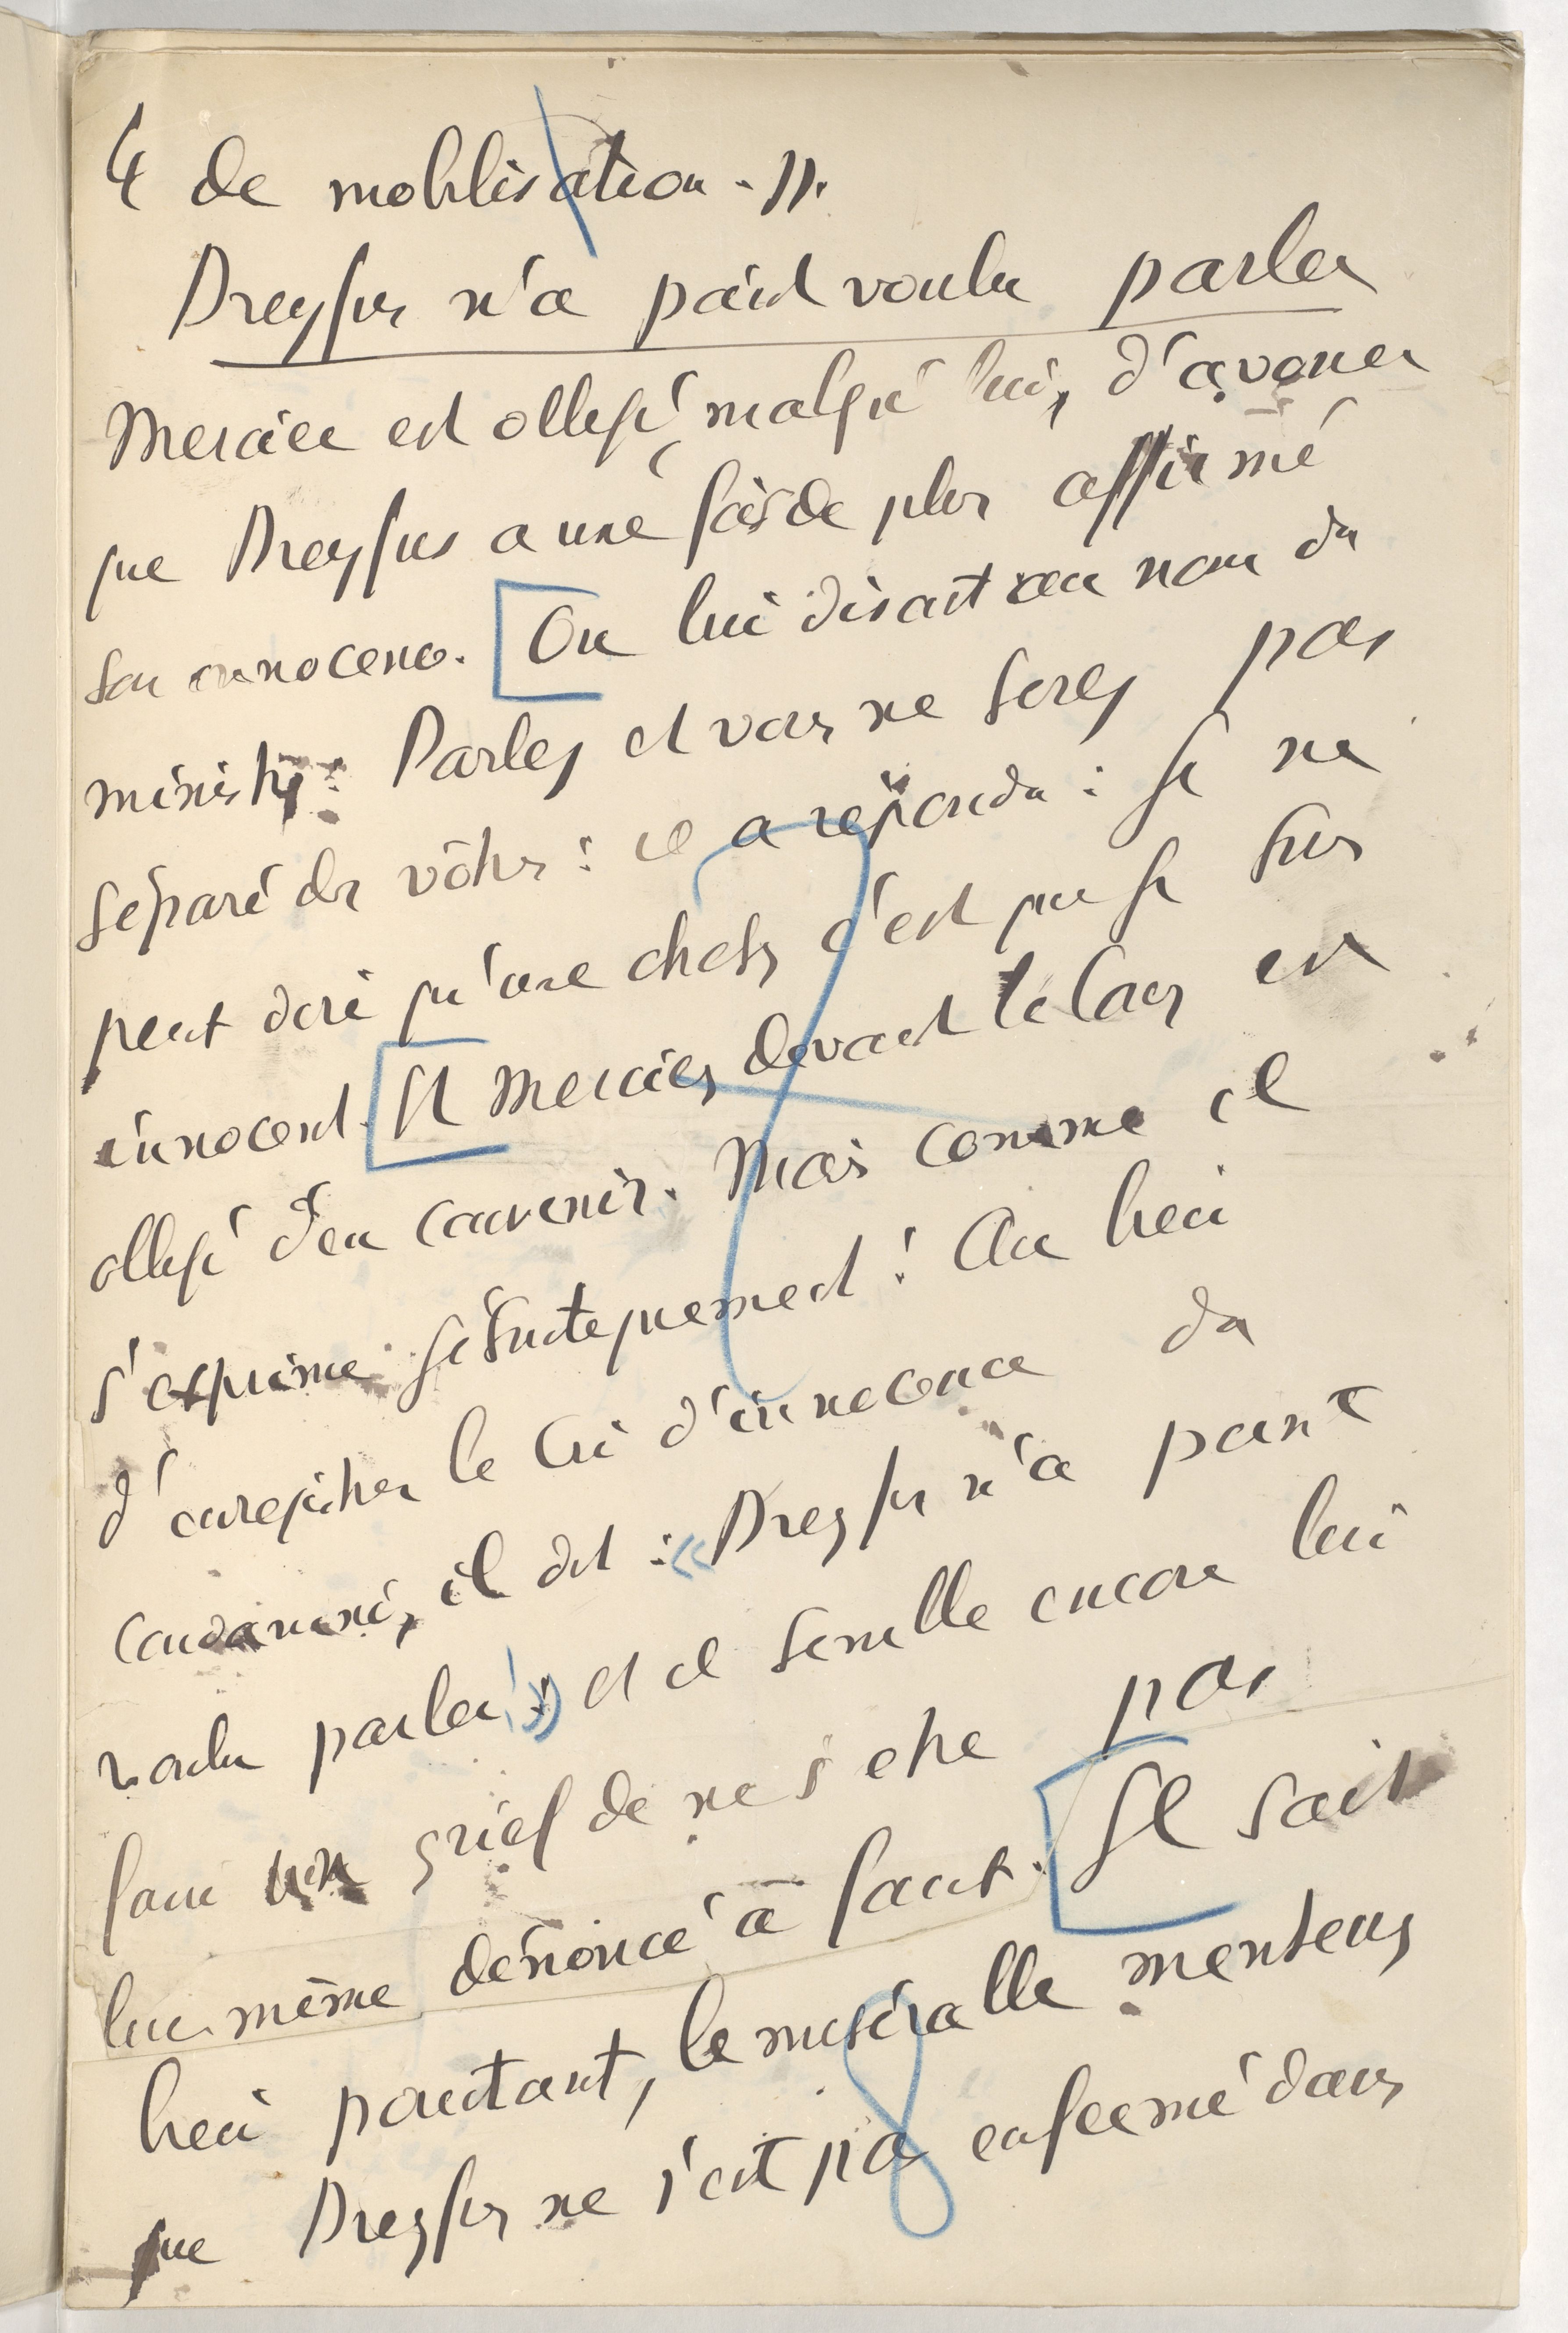 4 de mobilisation. ».
Dreyfus n'a point voulu parler
Mercier est obligé, malgré lui, d'avouer
que Dreyfus a une fois de plus affirmé
son innocence. On lui disait au nom du
ministre : Parlez et vous ne serez pas
séparé des vôtres : il a répondu : Je ne
peut dire qu'une chose, c'est que je suis
innocent. Et Mercier, devant la Cour est
obligé d'en convenir. Mais comme il
s'exprime jésuitiquement ! Au lieu
d'enregistrer le cri d'innocence du
condamné, il dit : « Dreyfus n'a point
voulu parler ! » et il semble encore lui
faire un grief de ne s'être pas
lui-même dénoncé à faux. Il sait
bien pourtant, le misérable menteur,
que Dreyfus ne s'est pas enfermé dans